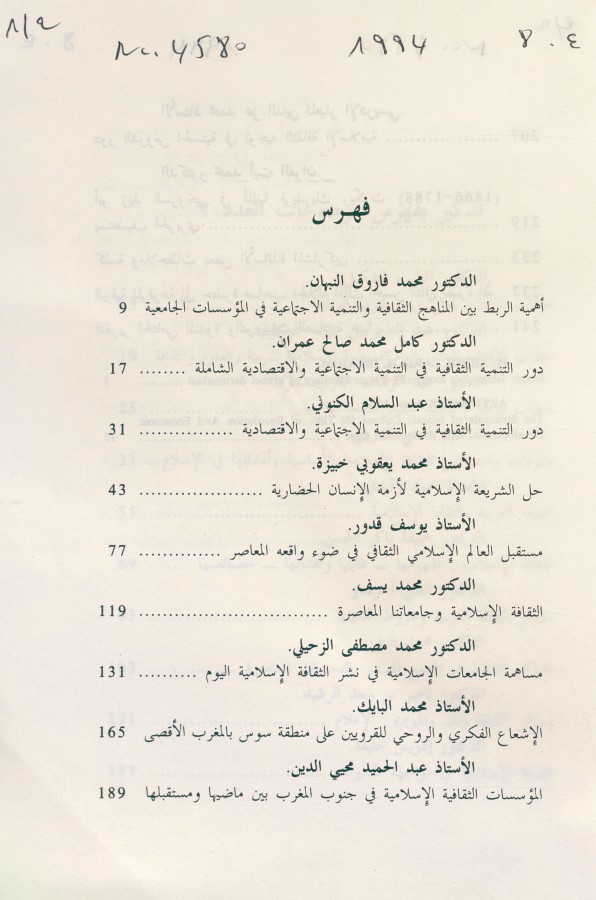 1/2
No. 4580 1994 8.ع
فهرس
الدكتور محمد فاروق النبهان.
أهمية الربط بين المناهج الثقافية والتنمية الاجتماعية في المؤسسات الجامعية 9
الدكتور كامل محمد صالح عمران.
دور التنمية الثقافية في التنمية الاجتماعية والاقتصادية الشاملة ........ 17
الأستاذ عبد السلام الكنوني.
دور التنمية الثقافية في التنمية الاجتماعية والاقتصادية ............... 31
الأستاذ محمد يعقوبي خبيزة.
حل الشريعة الإسلامية لأزمة الإنسان الحضارية .................... 43
الأستاذ يوسف قدور.
مستقبل العالم الإسلامي الثقافي في ضوء واقعه المعاصر ............. 77
الدكتور محمد يسف.
الثقافة الإسلامية وجامعاتنا المعاصرة .............................. 119
الدكتور محمد مصطفى الزحيلي.
مساهمة الجامعات الإسلامية في نشر الثقافة الإسلامية اليوم .......... 131
الأستاذ محمد البايك.
الإشعاع الفكري والروحي للقرويين على منطقة سوس بالمغرب الأقصى 165
الأستاذ عبد الحميد محيي الدين.
المؤسسات الثقافية الإسلامية في جنوب المغرب بين ماضيها ومستقبلها 189